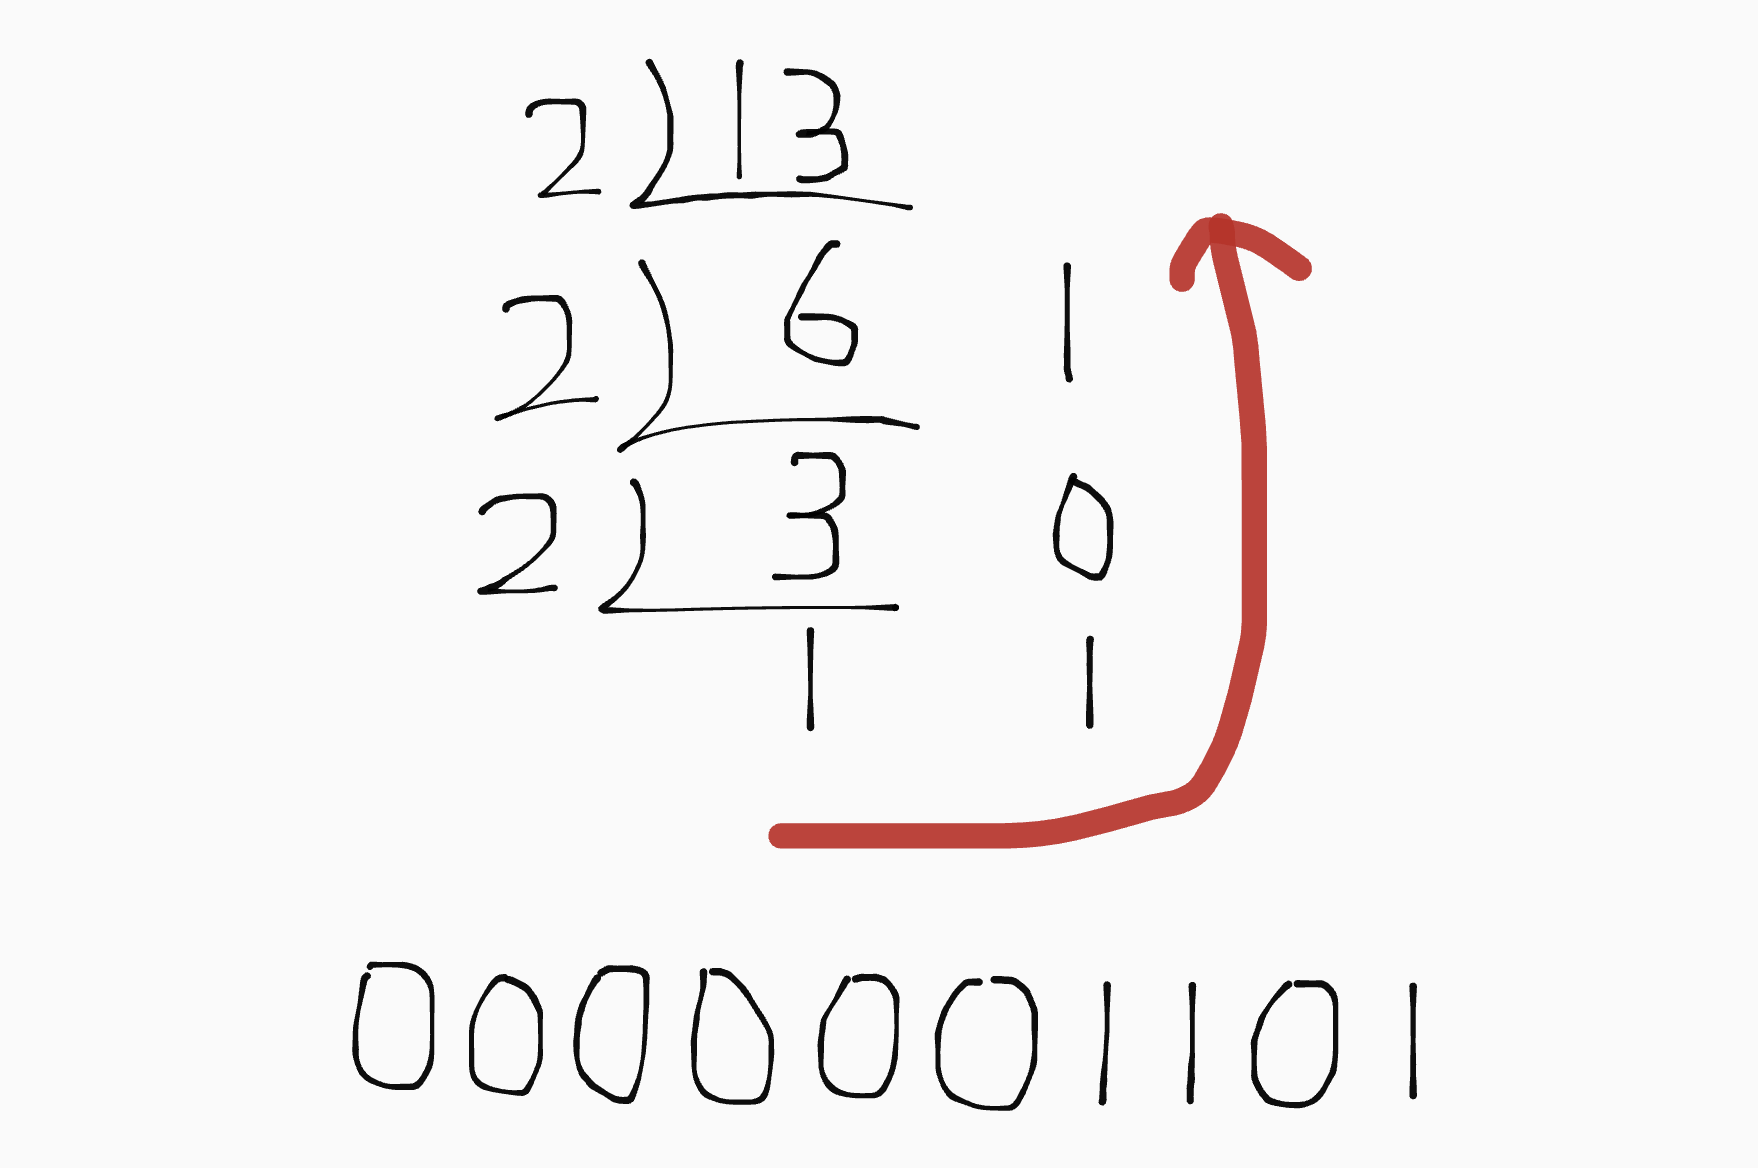 2 ) 13
2 ) 6 1
2 ) 3 0
1 1
0000001101